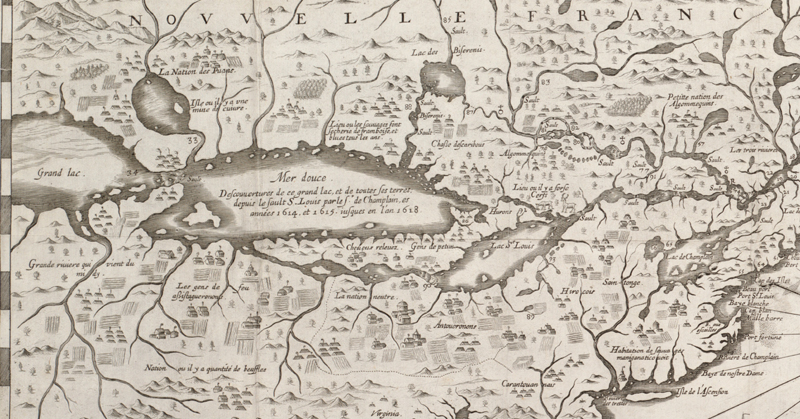 NOVVELLE FRANC
85
Sault
Lac des Biserenis
83
La Nation des Puans
Isle ou il y a vne
mine de cuivre
33
Sault
Biserenis
Sault
Sault
Petitte nation des
Algommequins
Lieu ou les sauvages font
secherie de framboise, et
blues tous les ans
Chasse des caribous
Algommequins
Sault
Les trois rivieres
Grand lac
34
Sault
Mer douce
Descouvertures de ce grand lac, et de toutes ses terres,
depuis le sault S. Louis par le S. de Champlain, es
années 1614, et 1615, iusques en l'an 1618
Lieu ou il y a force
Cerfs
Hurons
Sault
Sault
Lac St Louis
Lac de Champlain
Cheueux releuez
Gens de petun
Grande riviere qui vient du
midy
Les gens de feu
Assistagueronons
La nation neutre
90
Hirocois
Antouoronons
89
Port St Louis
Baye blanche
Malle barre
Port fortuné
Habitation de sauvages
Riviere de Champlain
Baye de nostre Dame
Nation ou il y a quantité de buffles
Carantouan nais
Isle de l'Ascension
Virginia